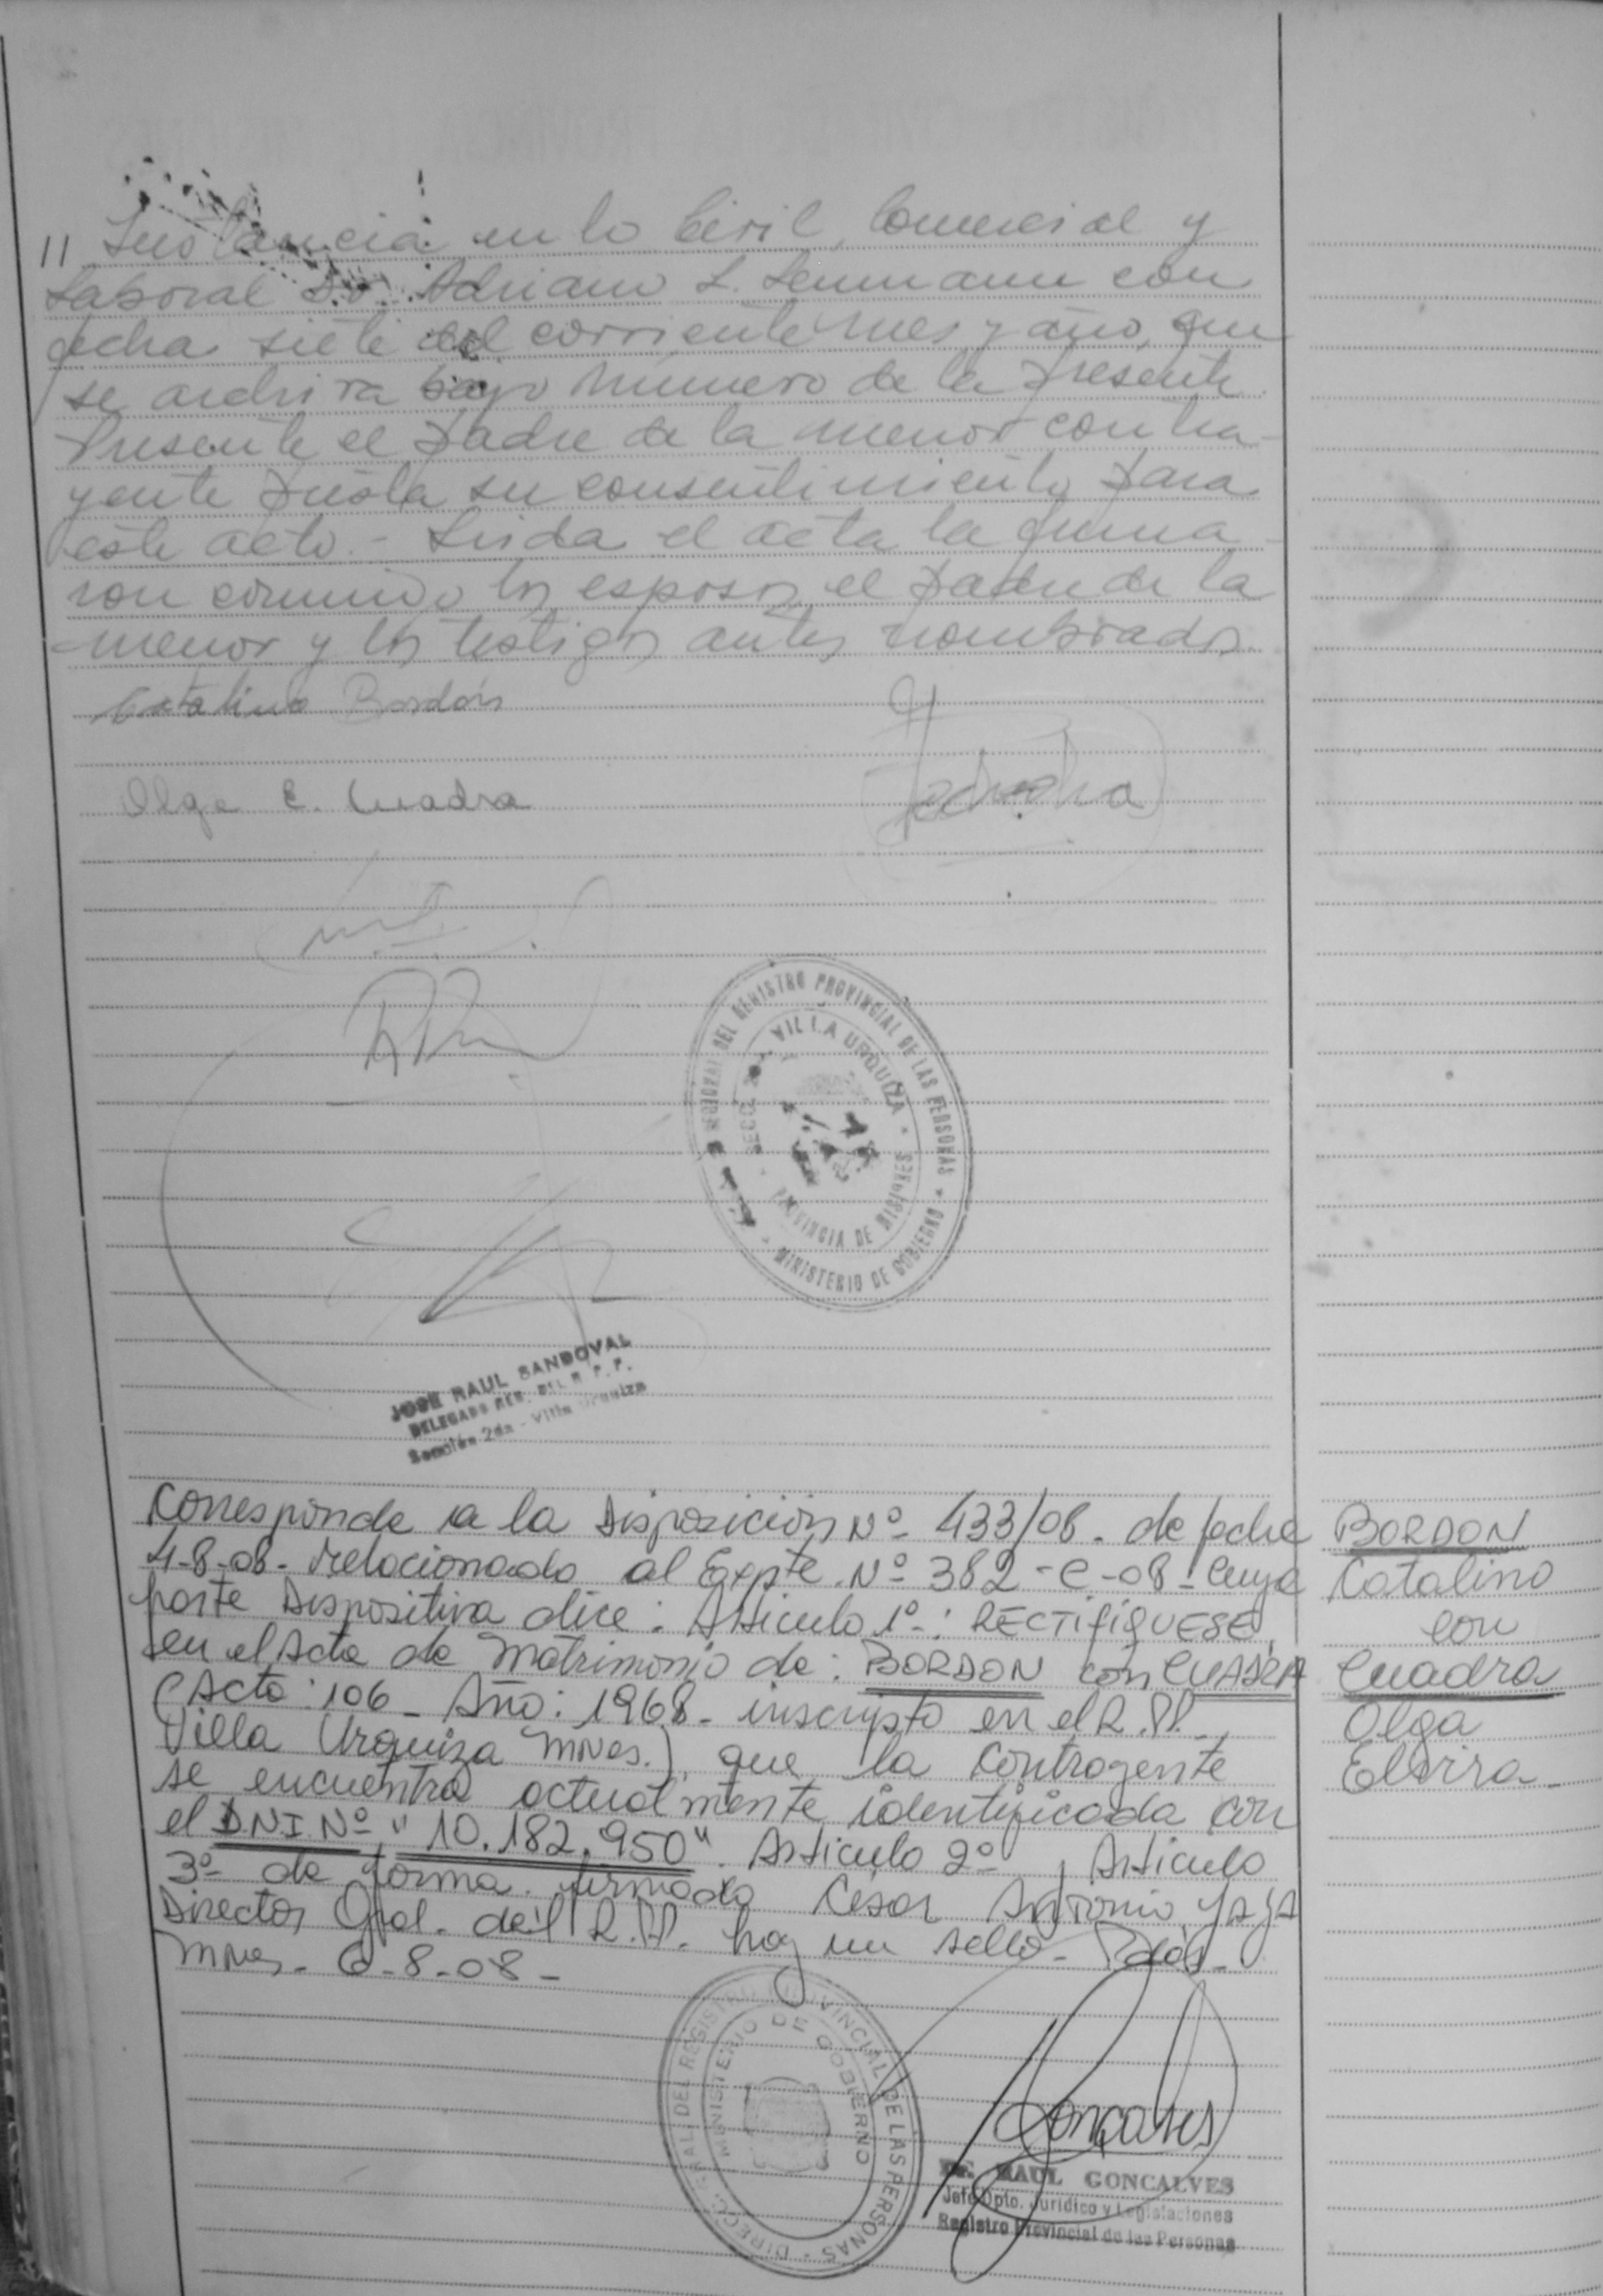 11 Instancia en lo Civil, Comercial y
Laboral Dr. Adriano L. con
fecha siete del corriente mes y año, que
se archiva bajo número de la presente.
Presente el padre de la menor contra-
yente presta su consentimiento para
este acto.- Leida el acta la firma-
ron conmigo los esposos, el padre de la
menor y los testigos antes nombrados.
Catalino Bordón
Olga E. Cuadra
REGIONAL DEL REGISTRO PROVINCIAL DE LAS PERSONAS * MINISTERIO DE GOBIERNO
SECC. 2da. VILLA URQUIZA * PROVINCIA DE MISIONES
JOSE RAUL SANDOVAL
DELEGADO REG. DEL R. P. P.
Sección 2da - Villa Urquiza
Corresponde a la Disposicion Nº 433/08 - de fecha
4-8-08- relacionado al Expte. Nº 382-C-08- cuya
parte Dispositiva dice: Articulo 1º: RECTIFIQUESE,
en el Acta de Matrimonio de: BORDON con CUADRA
(Acta: 106 - Año: 1968 - inscripto en el R.PP. -
Villa Urquiza Mnes.), que la contrayente
se encuentra actualmente identificada con
el DNI Nº "10.182.950". Articulo 2º, Articulo
3º de forma. firmado Cesar Antonio YAYA
Director Gral. del R.PP. hay un sello - Pdas -
Mnes. 6-8-08-
BORDON
Catalino
con
Cuadra
Olga
Elvira-
DIRECC. GRAL. DEL REGISTRO PROVINCIAL DE LAS PERSONAS
MINISTERIO DE GOBIERNO
Goncalves
RAUL GONCALVES
Jefe Dpto. Jurídico y Legislaciones
Registro Provincial de las Personas